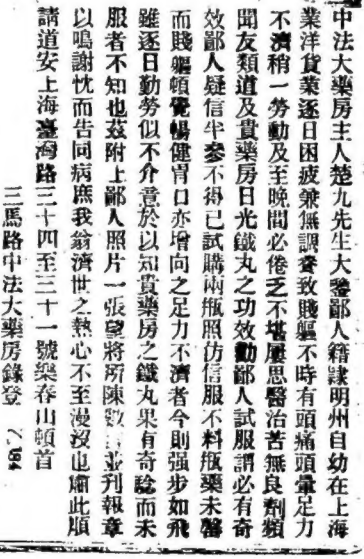 中法大藥房主人楚九先生大鑒鄙人籍隸明州自幼在上海
業洋貨業逐日困疲兼無調養致賤軀不時有頭痛頭暈足力
不濟稍一勞動及至晚間必倦乏不堪屢思醫治苦無良劑頻
聞友類道及貴藥房日光鐵丸之功效勸鄙人試服謂必有奇
效鄙人疑信半參不得已試購兩瓶照仿信服不料瓶藥未罄
而賤軀頓覺暢健胃口亦增向之足力不濟者今則强步如飛
雖逐日勤勞似不介意於以知貴藥房之鐵丸果有奇騐而未
服者不知也茲附上鄙人照片一張望將所陳數 並刊報章
以鳴謝忱而告同病庶我翁濟世之熱心不至漫沒也肅此順
請道安上海臺灣路三十四至三十一號樂春山頓首
三馬路中法大藥房錄登